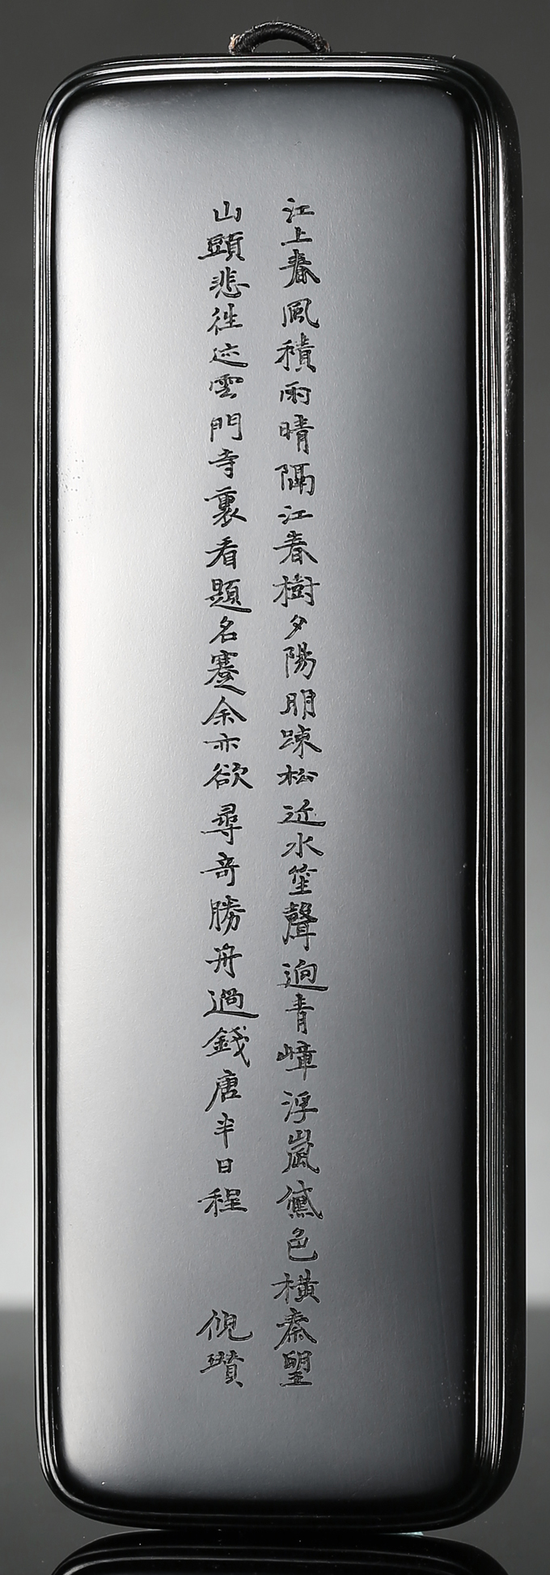 江上春風積雨晴隔江春樹夕陽明踈松近水笙聲迥青嶂浮嵐黛色橫秦望
山頭悲往迹雲門寺裏看題名蹇余亦欲尋奇勝舟過錢唐半日程
倪瓚